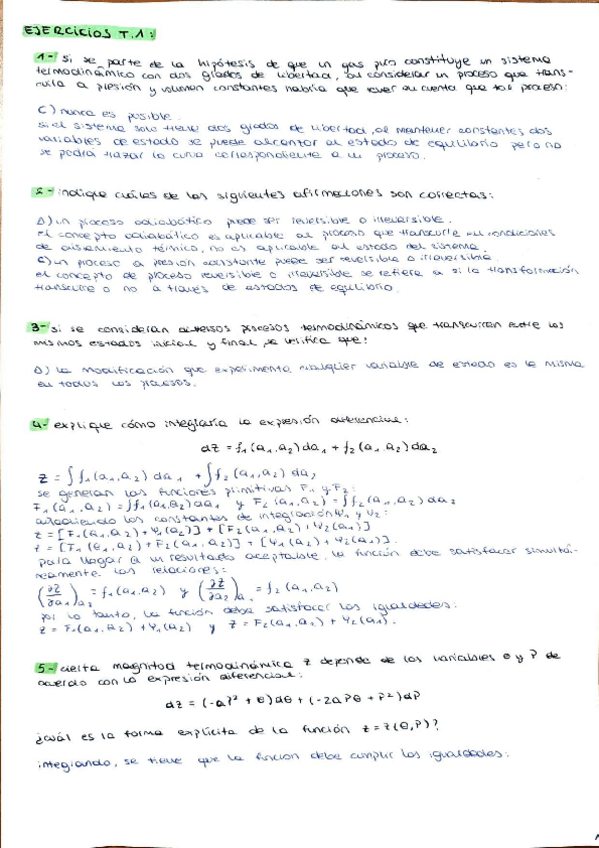 EJERCICIOS T.1:
1- si se parte de la hipótesis de que un gas puro constituye un sistema
termodinámico con dos grados de libertad, al considerar un proceso que trans-
curra a presión y volumen constantes habría que tener en cuenta que tal proceso:
C) nunca es posible.
si el sistema solo tiene dos grados de libertad, al mantener constantes dos
variables de estado se puede alcanzar el estado de equilibrio pero no
se podrá trazar la curva correspondiente a un proceso.
2- indique cuáles de las siguientes afirmaciones son correctas:
A) un proceso adiabático puede ser reversible o irreversible.
el concepto adiabático es aplicable al proceso que transcurre en condiciones
de aislamiento térmico, no es aplicable al estado del sistema.
C) un proceso a presión constante puede ser reversible o irreversible.
el concepto de proceso reversible o irreversible se refiere a si la transformación
transcurre o no a través de estados de equilibrio.
3- si se consideran diversos procesos termodinámicos que transcurran entre los
mismos estados inicial y final, se verifica que:
A) la modificación que experimenta cualquier variable de estado es la misma
en todos los procesos.
4- explique cómo integraría la expresión diferencial:
dz = f₁(a₁,a₂)da₁ + f₂(a₁,a₂)da₂
z = ∫f₁(a₁,a₂)da₁ + ∫f₂(a₁,a₂)da₂
se generan las funciones primitivas F₁ y F₂:
F₁(a₁,a₂) = ∫f₁(a₁,a₂)da₁ y F₂(a₁,a₂) = ∫f₂(a₁,a₂)da₂
añadiendo las constantes de integración Ψ₁ y Ψ₂:
z = [F₁(a₁,a₂) + Ψ₁(a₂)] + [F₂(a₁,a₂) + Ψ₂(a₁)]
z = [F₁(a₁,a₂) + F₂(a₁,a₂)] + [Ψ₁(a₂) + Ψ₂(a₁)].
para llegar a un resultado aceptable, la función debe satisfacer simultá-
neamente las relaciones:
(∂z/∂a₁)a₂ = f₁(a₁,a₂) y (∂z/∂a₂)a₁ = f₂(a₁,a₂)
por lo tanto, la función debe satisfacer las igualdades:
z = F₁(a₁,a₂) + Ψ₁(a₂) y z = F₂(a₁,a₂) + Ψ₂(a₁).
5- cierta magnitud termodinámica z depende de las variables θ y P de
acuerdo con la expresión diferencial:
dz = (-aP² + θ)dθ + (-2aPθ + P²)dP
¿cuál es la forma explícita de la función z = z(θ,P)?
integrando, se tiene que la función debe cumplir las igualdades: